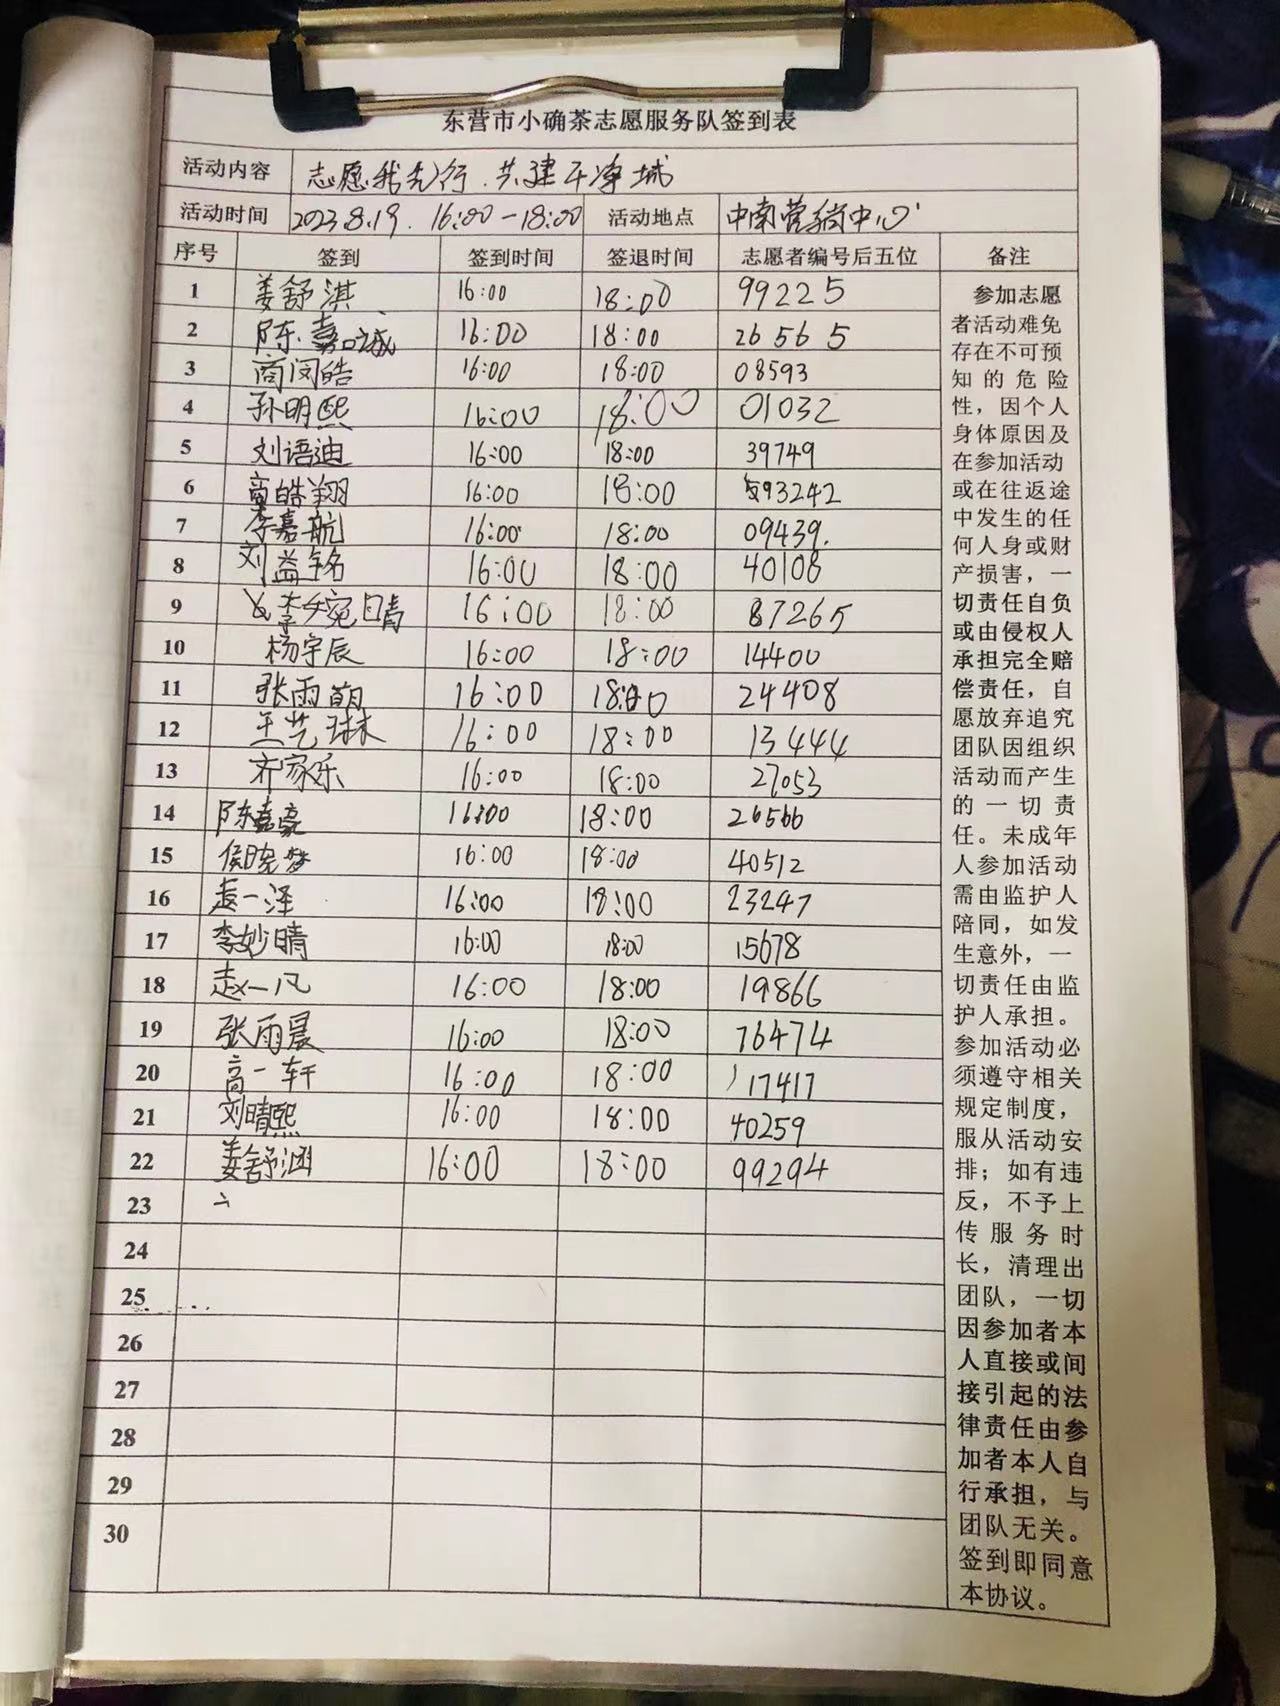 东营市小确茶志愿服务队签到表
活动内容 志愿我先行.共建干净城
活动时间 2023.8.19. 16:00-18:00 活动地点 中南营销中心
序号 签到 签到时间 签退时间 志愿者编号后五位 备注
1 姜舒淇 16:00 18:00 99225
2 陈嘉诚 16:00 18:00 26565
3 商闵皓 16:00 18:00 08593
4 孙明熙 16:00 18:00 01032
5 刘语迪 16:00 18:00 39749
6 皓翔 16:00 18:00 93242
7 李嘉航 16:00 18:00 09439.
8 刘益铭 16:00 18:00 40108
9 李婉晴 16:00 18:00 87265
10 杨宇辰 16:00 18:00 14400
11 张雨萌 16:00 18:00 24408
12 王艺琳 16:00 18:00 13444
13 齐家乐 16:00 18:00 27053
14 陈嘉豪 16:00 18:00 26566
15 侯晓梦 16:00 18:00 40512
16 赵一泽 16:00 18:00 23247
17 李妙晴 16:00 18:00 15678
18 赵一凡 16:00 18:00 19866
19 张雨晨 16:00 18:00 76474
20 高一轩 16:00 18:00 17417
21 刘晴熙 16:00 18:00 40259
22 姜舒涵 16:00 18:00 99294
23
24
25
26
27
28
29
30
参加志愿
者活动难免
存在不可预
知的危险
性，因个人
身体原因及
在参加活动
或在往返途
中发生的任
何人身或财
产损害，一
切责任自负
或由侵权人
承担完全赔
偿责任，自
愿放弃追究
团队因组织
活动而产生
的一切责
任。未成年
人参加活动
需由监护人
陪同，如发
生意外，一
切责任由监
护人承担。
参加活动必
须遵守相关
规定制度，
服从活动安
排；如有违
反，不予上
传服务时
长，清理出
团队，一切
因参加者本
人直接或间
接引起的法
律责任由参
加者本人自
行承担，与
团队无关。
签到即同意
本协议。